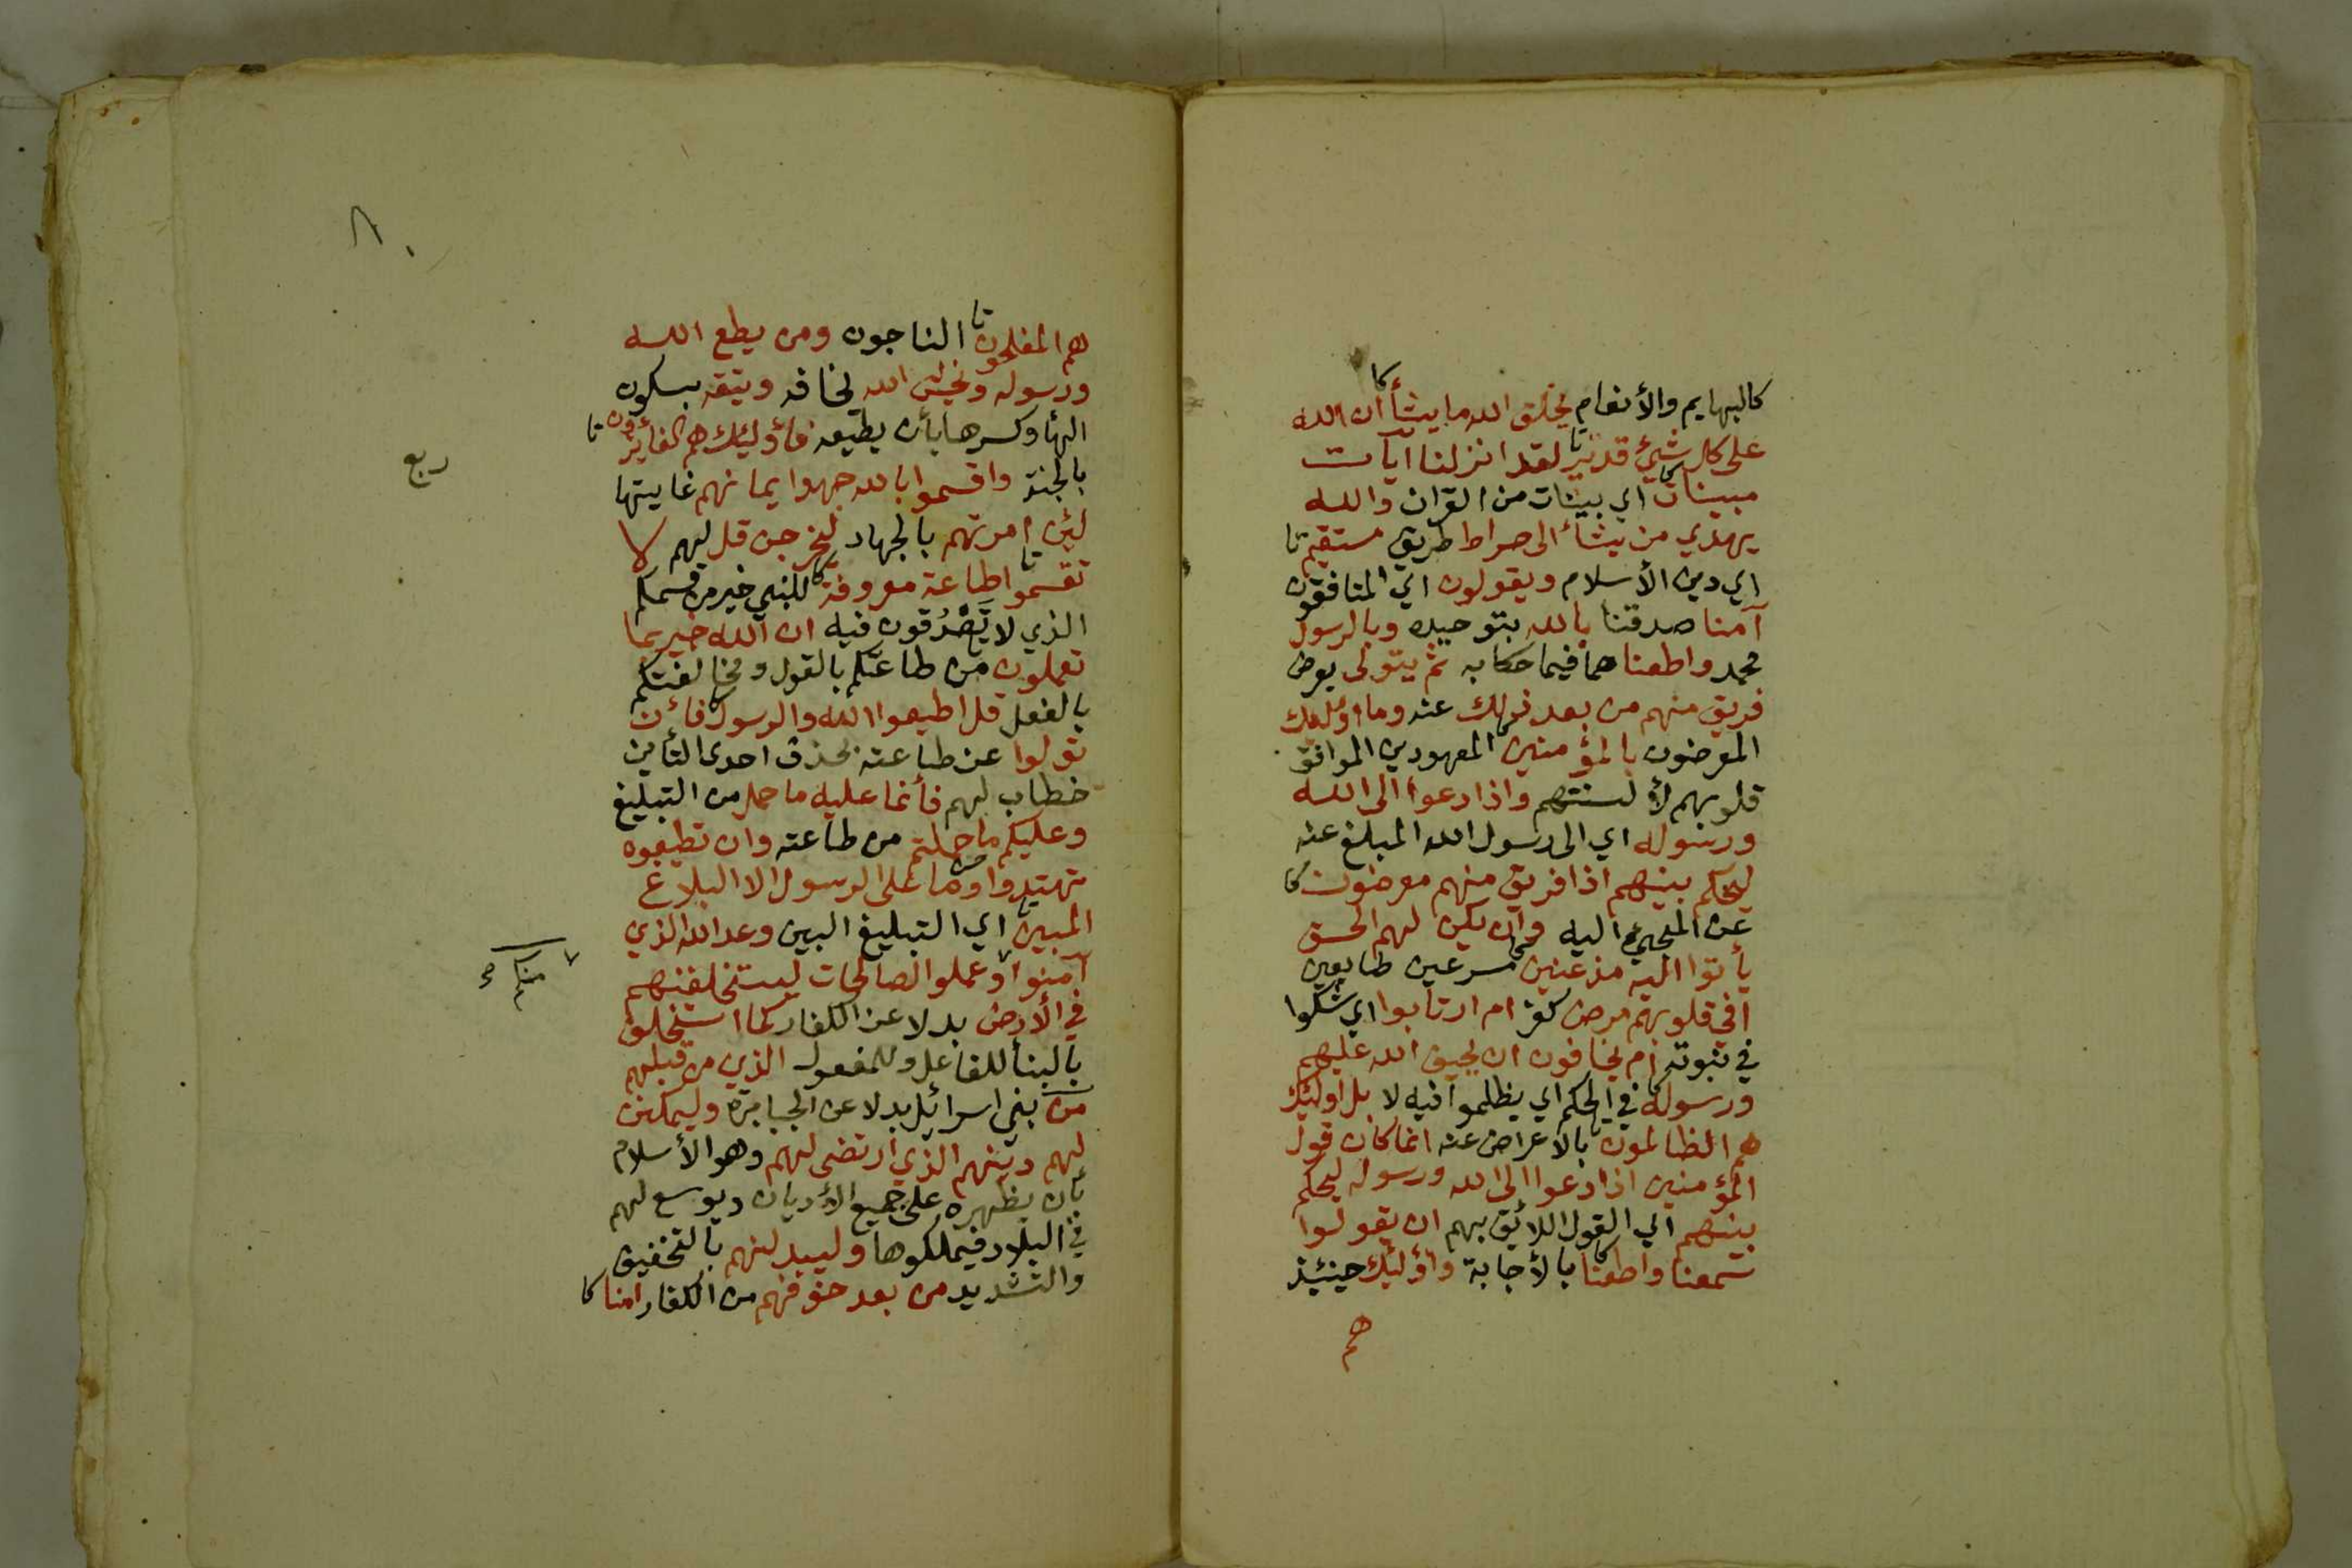 كالبهايم والأنعام يخلق الله ما يشأ كا ان الله
على كل شيئ قدير تا لقد انزلنا آيات
مبينات كا اي بينات من القران والله
يهدي من يشأ الى صراط طريق مستقيم تا
اي دين الأسلام ويقولون اي المنافقون
آمنا صدقنا بالله بتوحيده وبالرسول
محمد واطعنا هما فيما حكا به ثم يتولى يعرض
فريق منهم من بعد ذلك عنه وما اولئك
المعرضون بالمؤمنين المعهودين الموافق
قلوبهم لأ لسنتهم واذا دعوا الى الله
ورسوله اي الى رسول الله المبلغ عنه
ليحكم بينهم اذا فريق منهم معرضون كا
عن المجيئ اليه وان يكن لهم الحق
يأتوا اليه مذعنين مسرعين طايعين
افي قلوبهم مرض كفر ام ارتابوا اي شكوا
في نبوته ام يخافون ان يحيف الله عليهم
ورسوله كا في الحكم اي يظلموا فيه لا بل اوليئك
هم الظالمون تا بالأعراض عنه انما كان قول
المؤمنين اذا دعوا الى الله ورسوله ليحكم
بينهم الي القول اللائق بهم ان يقولوا
سمعنا واطعنا كا بالأجابة وأوليئك حينئذ
هم
٨٠
هم المفلحون تا الناجون ومن يطع الله
ورسوله ونخش الله يخافه ويتقه بسكون
الهأ وكسرها بأن يطيعه فأوليئك هم الفائزون تا
بالجنة واقسموا بالله جهد ايمانهم غايتها
ربع
لئن امرتهم بالجهاد ليخرجن قل لهم لا
تقسموا تا طاعة معروفة كا للنبي خير من قسمكم
الذي لا تَصْدُقون فيه ان الله خبير بما
تعملون من طاعتكم بالقول ومخالفتكم
بالفعل قل اطيعوا الله والرسول كا فأن
تولوا عن طاعته بحذف احدى التأين
خطاب لهم فأنما عليه ما حمل من التبليغ
وعليكم ما حملتم من طاعته وان تطيعوه
تهتدوا وما على الرسول الا البلاغ
المبين تا اي التبليغ البين وعد الله الذي
آمنوا ٧ وعملوا الصالحات ليستخلفنهم
٧ منكم صح
في الأرض بدلا عن الكفار كما استخلف
بالبنأ للفاعل وللمفعول الذي من قبلهم
من بني اسرائيل بدلا عن الجبابرة وليمكنن
لهم دينهم الذي ارتضى لهم وهو الأسلام
بأن يظهره على جميع الأديان ويوسع لهم
في البلاد فيملكوها وليبدلنهم بالتخفيف
والتشديد من بعد خوفهم من الكفار امنا كا